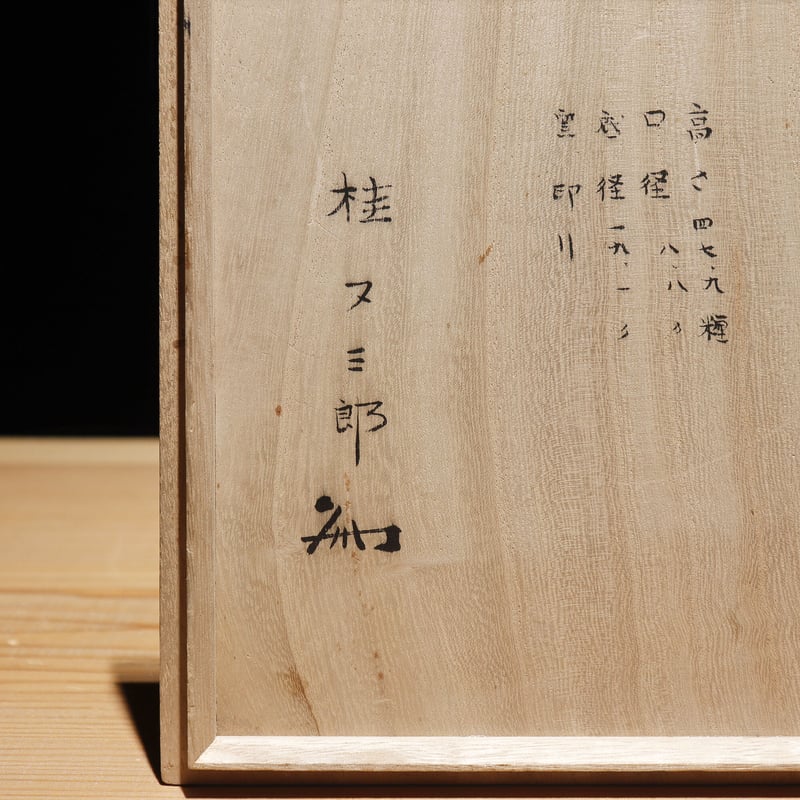 高さ四七.九糎
口径八.八〃
底径一九.一〃
窯印 ||
桂又三郎